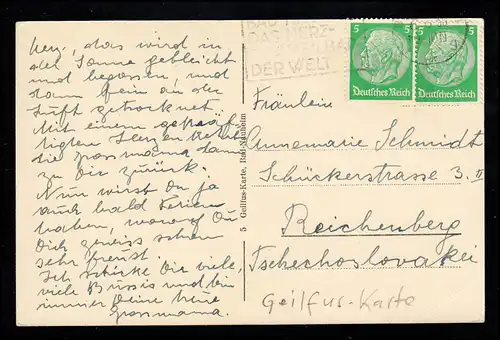 BAD N
DAS HERZ-
HEILBAD
DER WELT
5
5
Deutsches Reich
Deutsches Reich
Herz, das wird in
der Sonne gebleicht
und begossen, und
dann fein an der
Luft getrocknet.
Mit einem gekräf-
tigten Herzen kehrt
die Grossmama dann
zu Dir zurück.
Nun wirst Du ja
auch bald Ferien
haben, worauf Du
Dich gewiss schon
sehr freust.
Ich schicke Dir viele,
viele Bussis und bin
immer Deine
Grossmama.
5 Geilfus-Karte, Bad-Nauheim
Fräulein
Annemarie Schmidt
Schückerstrasse 3. II
Reichenberg
Tschechoslovakei
Geilfus-Karte